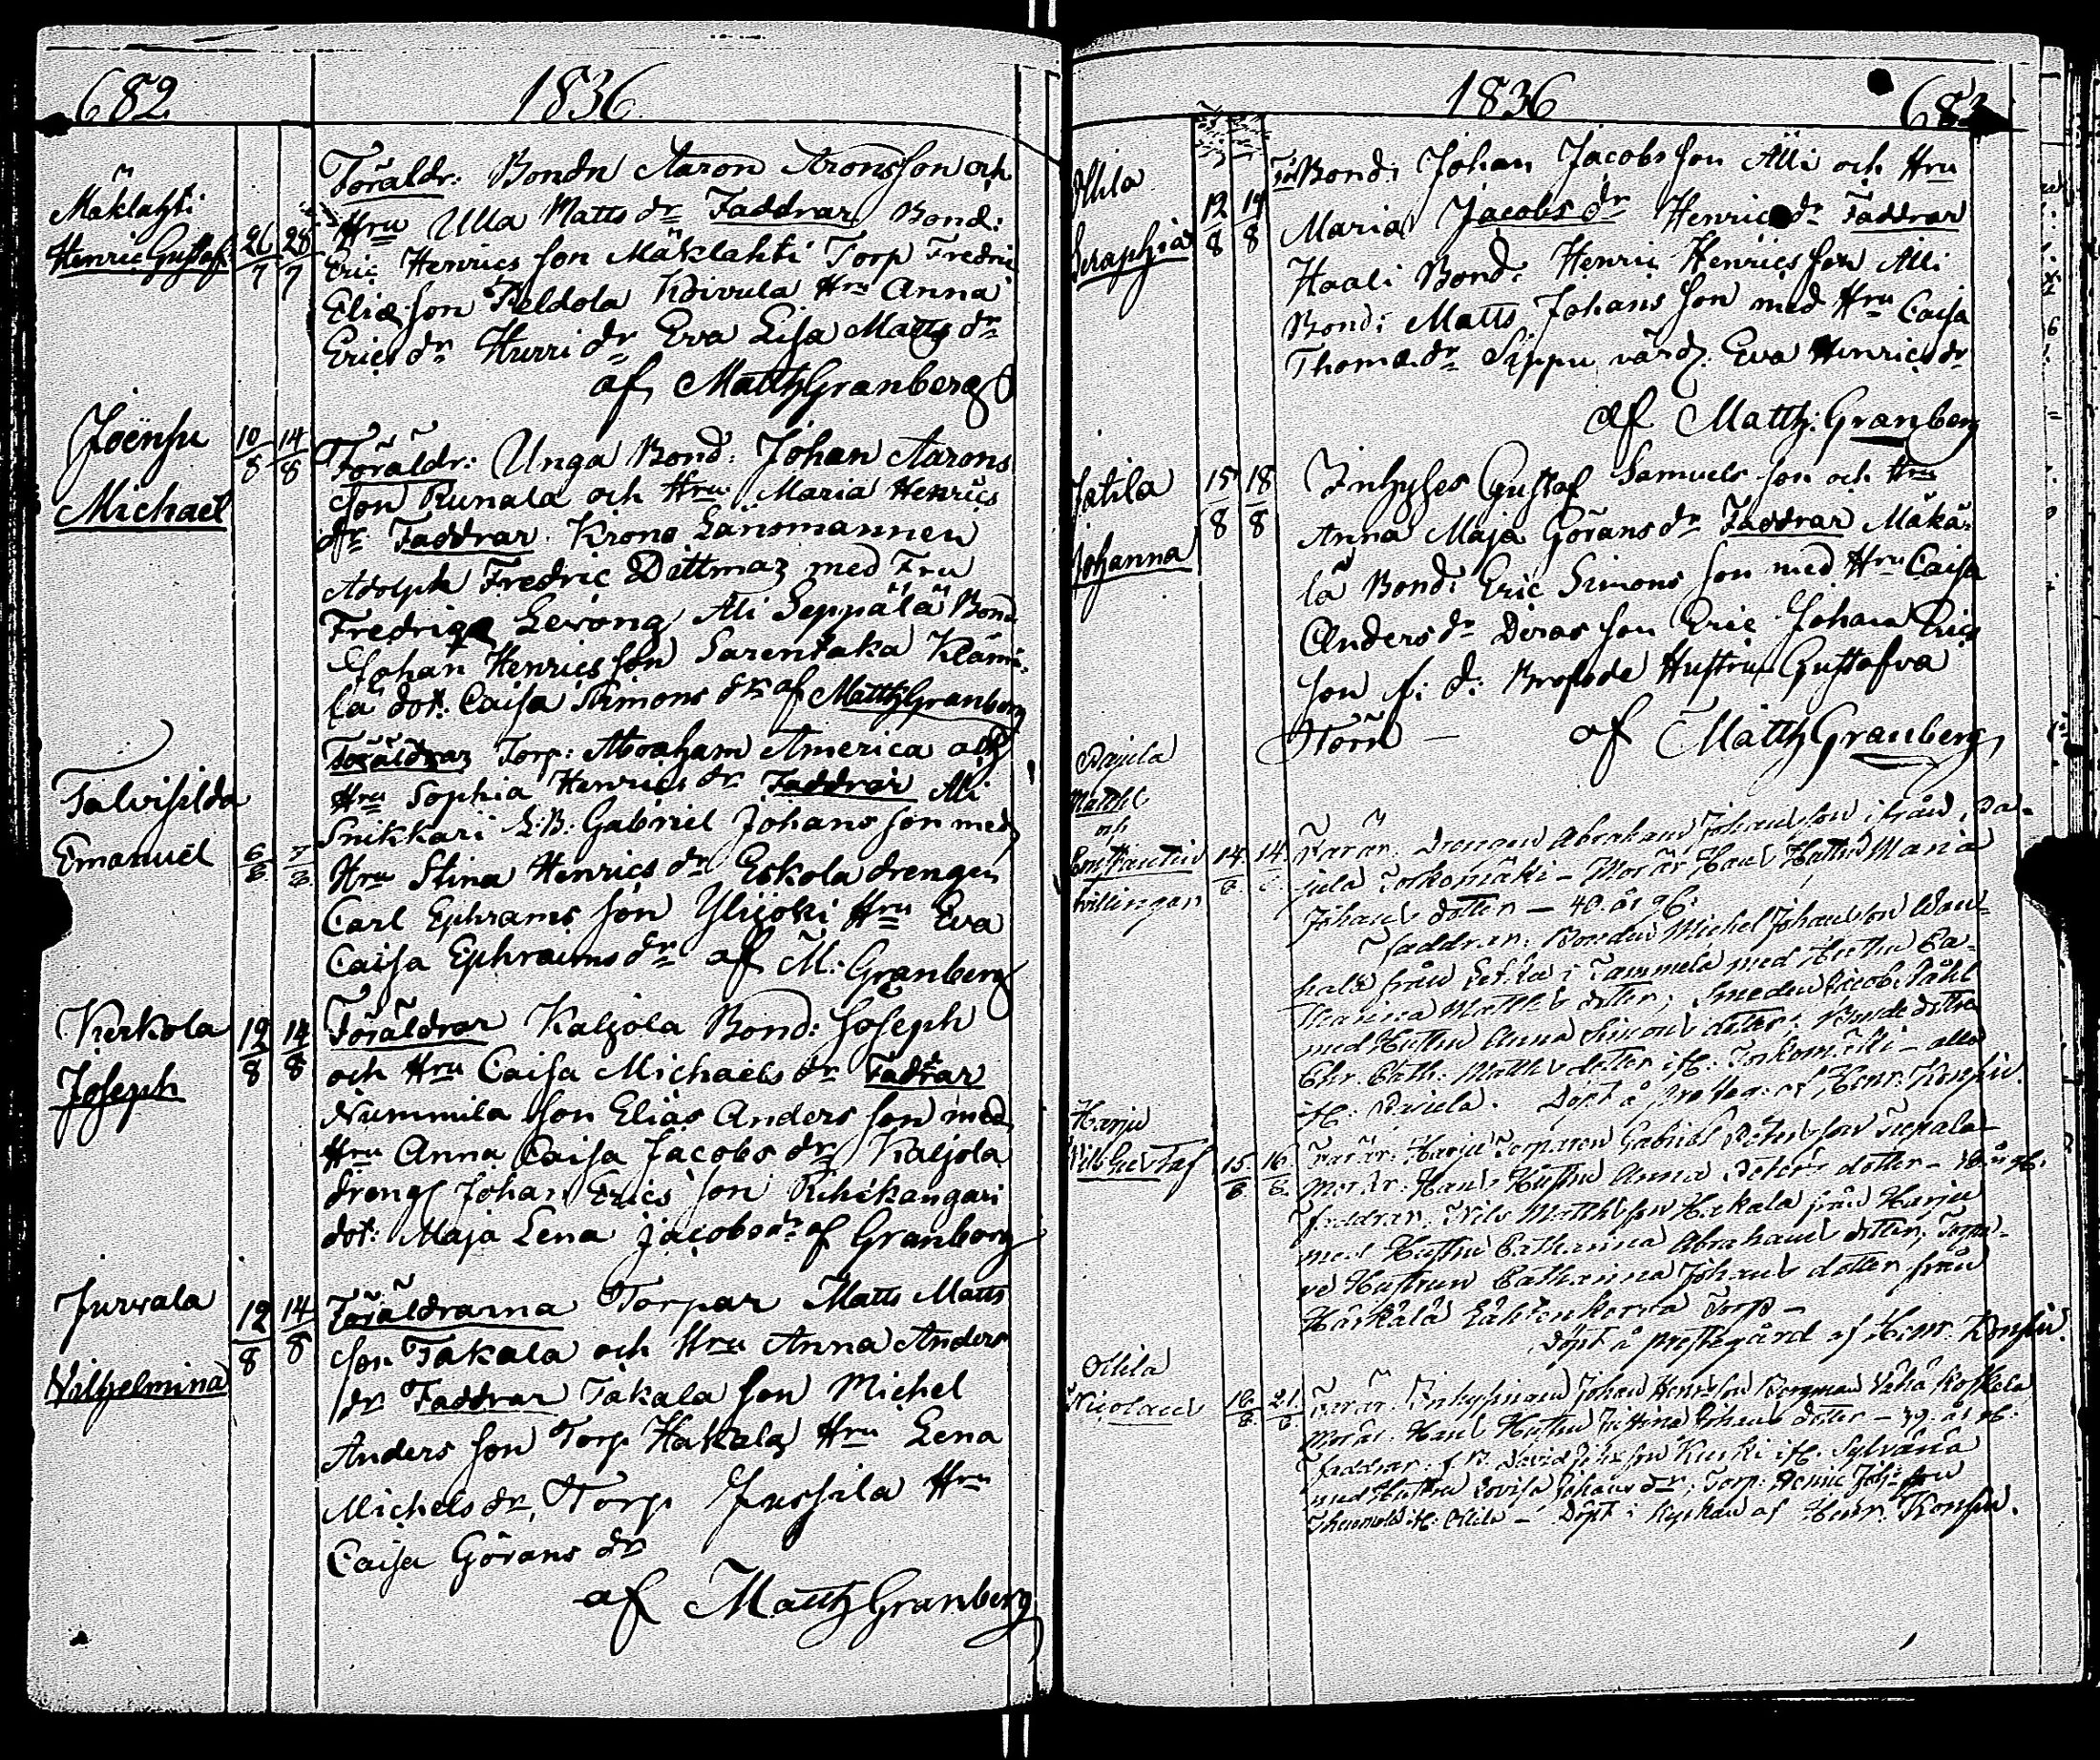 682 1836
Mäklahti
Henric Gustaf
26/7 28/7
Föräldr: Bondn Aaron Aronsson och
Hru Ulla Matts dr Faddrar Bond:
Eric Henrics son Mäklahti Torp Fredric
Eliæ son Peldola Koivula Hru Anna
Erics dr Hurri dr Eva Lisa Matts dr
af MatthGranberg
Joensu
Michaël
10/8 14/8
Föräldr: Unga Bond: Johan Aarons
son Runala och Hru Maria Henrics
dr Faddrar Krono Länsmannen
Adolph Fredric Dittmar med Fru
Fredrique Ali Seppälä Bond
Johan Henrics son Sarentaka Klämi-
lä dot: Caisa Simons dr af MatthGranberg
Talvisilda
Emanuël
6/8 7/8
Föräldrar Torp: Abraham America och
Hru Sophia Henrics dr Faddrar Ali
Snikkari L:B: Gabriel Johans son med
Hru Stina Henrics dr Eskola drengen
Carl Ephrams son Ylijoki Hru Eva
Caisa Ephraims dr af M: Granberg
Kerkola
Joseph
12/8 14/8
Föräldrar Kaljola Bond: Joseph
och Hru Caisa Michaels dr Fadrar
Nummila son Elias Anders son med
Hru Anna Caisa Jacobs dr Kaljola
dreng Johan Erics son Rihikangari
dot: Maja Lena Jacobs dr af Granberg
Jurvala
Vilhelmina
12/8 14/8
Föräldrarna Torpar Matts Matts
son Takala och Hru Anna Anders
dr Faddrar Takala son Michel
Anders son Torp Hakala Hru Lena
Michels dr, Torp Jussila Hru
Caisa Görans dr
af MatthGranberg
1836 683
Ollila
Seraphia
12/8 14/8
Bond: Johan Jacobs son Alli och Hru
Maria Jacobs dr Henrics dr Faddrar
Haali Bond: Henric Henrics son Alli
Bond: Matts Johans son med Hru Caisa
Thomæ dr Sippu värd: Eva Henrics dr
af Matth: Granberg
Jatila
Johanna
15/8 18/8
Inhyses Gustaf Samuels son och Hru
Anna Maja Görans dr Faddrar Mäkä-
lä Bond: Eric Simons son med Hru Caisa
Anders dr Deras son Eric Johan Erics
son f: d: Hustru Gustafva
af MatthGranberg
Pajula
Matthl
och
Constantin
tvillingar
14/8 14/8
Farär: Drengen Abraham Johansson ifrån Pa-
jula Torkomäki – Morär Hans Hustru Maria
Johans dotter – 40 år g.
Faddrar: Bonden Michel Johansson
från i Tammela med Hustru Ca-
tharina Matthls dotter; Smeden Jacob Ståhl
med Hustru Anna Simons dotter;
Chr. Cath: Matthls dotter ifr: Torkomäki – alla
ifr: Pajula. Döpt å Prsteg: af Henr. Konsin.
Harju
15/8 16/8
Farär: Harju Torparen Gabriel Peterson
Morär: Hans Hustru Anna Peters dotter –
Faddrar: Nils Matthlsson Hakala från Harju
med Hustru Catharina Abrahams dotter, Torpa-
re Hustrun Catharina Johans dotter från
Härkälä Lähtenkorva Torp –
Döpt å Prestegård af Henr. Konsin.
Ollila
Nicolaus
16/8 21/8
Farär: Inhysman Johan Henrsson Bergman Vähä Koskela
Morär: Hans Hustru Justina Johans dotter – 39 år g:
Faddrar: David Kurki ifr: Sylvänä
med Hustru Lovisa Johans dr; Torp: Henric Joh: son
ifr: Ollila – Döpt i Kyrkan af Henr. Konsin.